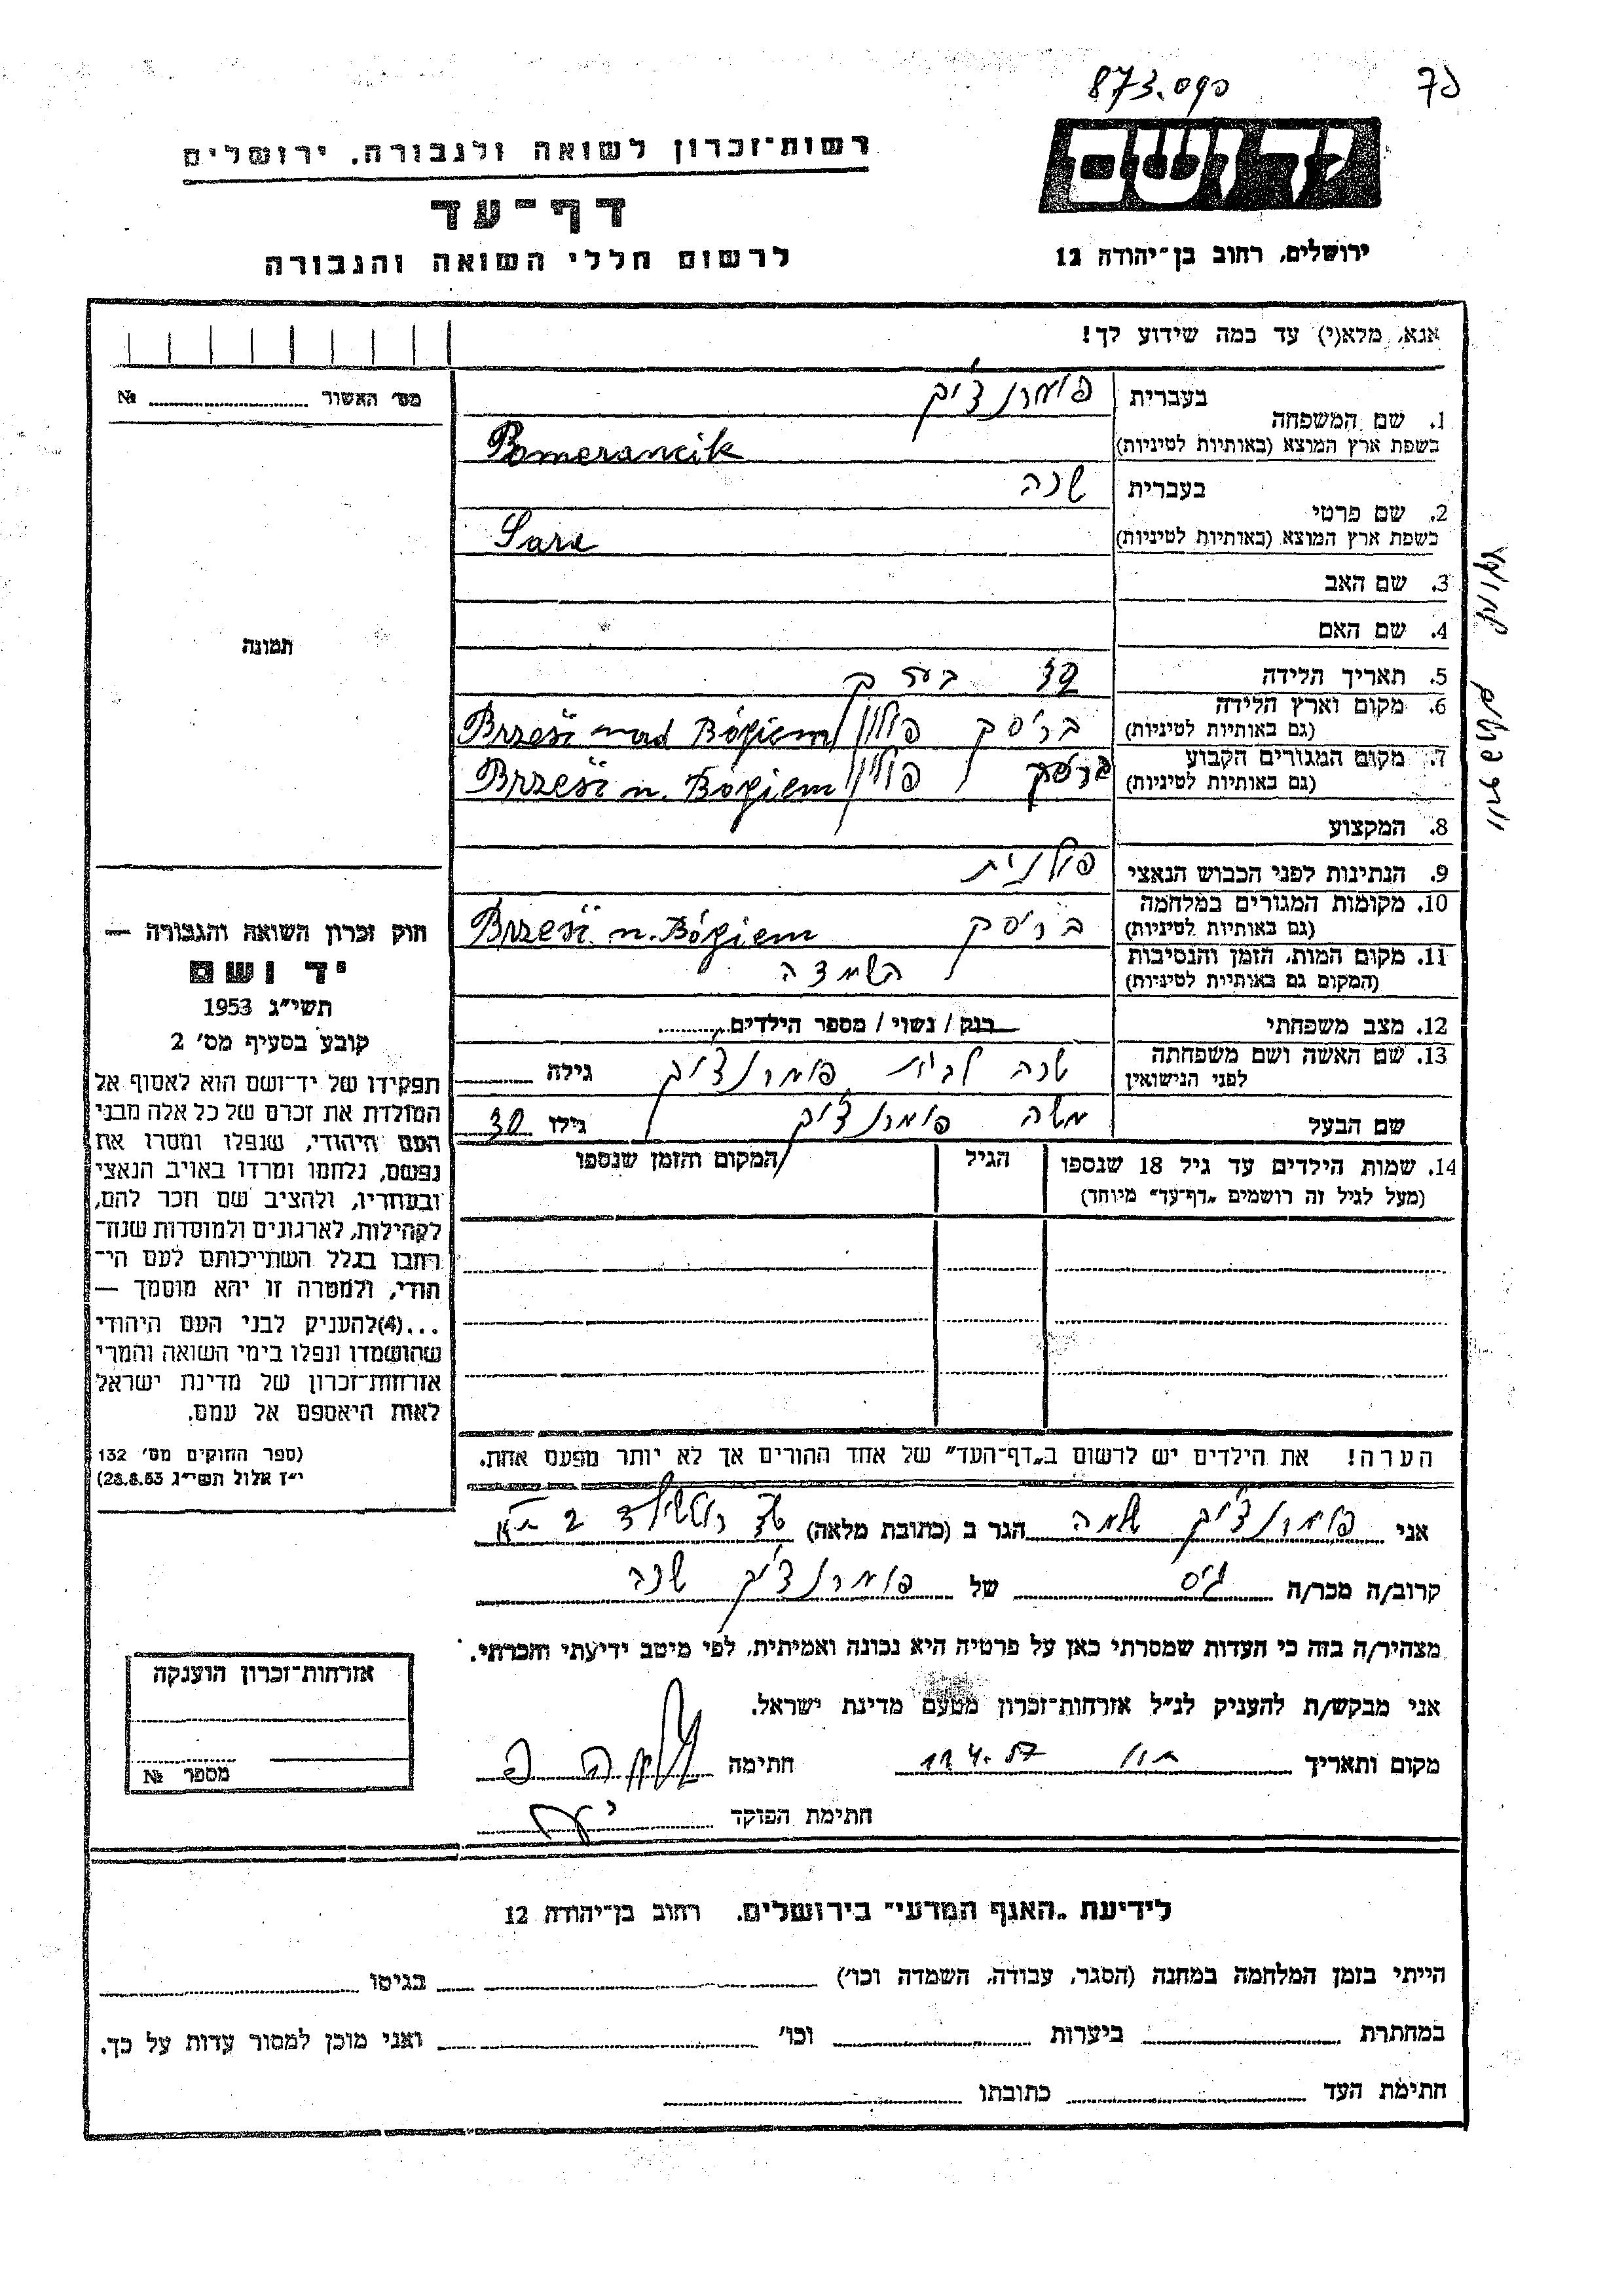 873.090
7ג
יד ושם
רשות־זכרון לשואה ולגבורה, ירושלים
דף־עד
לרשום חללי השואה והגבורה
ירושלים, רחוב בן־יהודה 12
אנא, מלא(י) עד כמה שידוע לך!
מס׳ האשור № ........
1. שם המשפחה
בעברית פומרנצ'יק
בשפת ארץ המוצא (באותיות לטיניות) Pomerancik
2. שם פרטי
בעברית שרה
בשפת ארץ המוצא (באותיות לטיניות) Sara
3. שם האב
4. שם האם
תמונה
5. תאריך הלידה 32 בערך
6. מקום וארץ הלידה (גם באותיות לטיניות) בריסק פולין Brześć nad Bógiem
7. מקום המגורים הקבוע (גם באותיות לטיניות) בריסק פולין Brześć n. Bógiem
8. המקצוע
9. הנתינות לפני הכבוש הנאצי פולנית
10. מקומות המגורים במלחמה (גם באותיות לטיניות) בריסק Brześć n. Bógiem
11. מקום המות, הזמן והנסיבות (המקום גם באותיות לטיניות) השמדה
12. מצב משפחתי רנק / נשוי / מספר הילדים........
13. שם האשה ושם משפחתה לפני הנישואין שרה לבית פומרנצ'יק גילה
שם הבעל משה פומרנצ'יק גילו 30
14. שמות הילדים עד גיל 18 שנספו (מעל לגיל זה רושמים „דף־עד״ מיוחד)
הגיל
המקום והזמן שנספו
חוק זכרון השואה והגבורה —
יד ושם
תשי״ג 1953
קובע בסעיף מס׳ 2
תפקידו של יד־ושם הוא לאסוף אל
המולדת את זכרם של כל אלה מבני
העם היהודי, שנפלו ומסרו את
נפשם, נלחמו ומרדו באויב הנאצי
ובעוזריו, ולהציב שם וזכר להם,
לקהילות, לארגונים ולמוסדות שנח־
רבו בגלל השתייכותם לעם הי־
הודי, ולמטרה זו יהא מוסמך —
...(4)להעניק לבני העם היהודי
שהושמדו ונפלו בימי השואה והמרי
אזרחות־זכרון של מדינת ישראל
לאות היאספם אל עמם.
(ספר החוקים מס׳ 132
י״ז אלול תשי״ג 28.8.53)
הערה! את הילדים יש לרשום ב„דף־העד״ של אחד ההורים אך לא יותר מפעם אחת.
אני פומרנצ'יק שלמה הגר ב (כתובת מלאה)
קרוב/ה מכר/ה גיס של פומרנצ'יק שרה
מצהיר/ה בזה כי העדות שמסרתי כאן על פרטיה היא נכונה ואמיתית, לפי מיטב ידיעתי והכרתי.
אני מבקש/ת להעניק לנ״ל אזרחות־זכרון מטעם מדינת ישראל.
מקום ותאריך 11.4.57 חתימה
חתימת הפוקד
אזרחות־זכרון הוענקה
מספר №
לידיעת „האגף המדעי״ בירושלים, רחוב בן־יהודה 12
הייתי בזמן המלחמה במחנה (הסגר, עבודה, השמדה וכו׳) בגיטו
במחתרת ביערות וכו׳ ואני מוכן למסור עדות על כך.
חתימת העד כתובתו